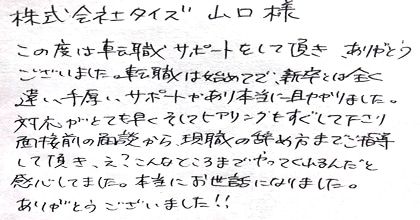 株式会社タイズ 山口様
この度は転職サポートをして頂き、ありがとう
ございました。転職は始めてで、新卒とは全く
違い、手厚いサポートがあり本当に助かりました。
対応がとても早く、そしてヒアリングもすぐして下さり
面接前の面談から、現職の辞め方までご指導
して頂き、え?こんなところまでやってくれるんだと
感心してました。本当にお世話になりました。
ありがとうございました!!